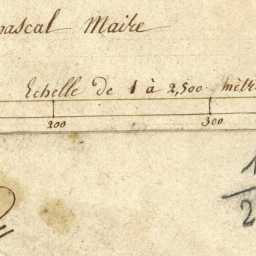 pascal Maire
Echelle de 1 à 2,500 mètr
200 300
1
2